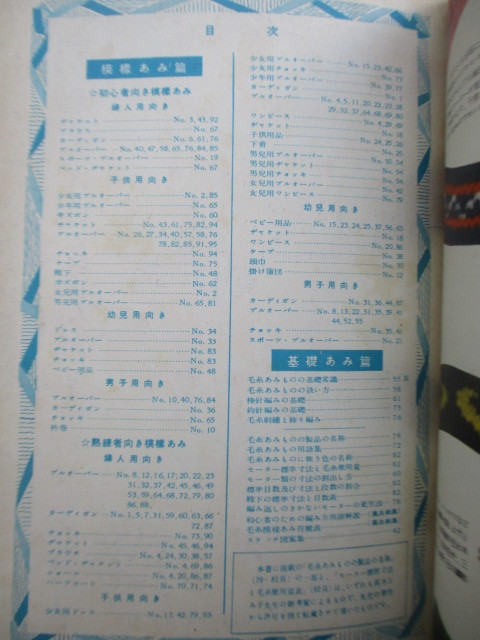 目次
模様あみ篇
☆初心者向き模様あみ
婦人用向き
ヂャケット No. 3, 43, 92
ブラウス No. 67
カーディガン No. 6, 61, 76
プルオーバー No. 40, 47, 58, 65, 76, 84, 85
スポーツ・プルオーバー No. 19
ベッド・ヂャケット No. 67
子供用向き
少女用プルオーバー No. 2, 85
少年用プルオーバー No. 65
半ズボン No. 60
ヂャケット No. 43, 61, 75, 82, 94
プルオーバー No. 26, 27, 34, 40, 57, 58, 76
78, 82, 85, 91, 95
チョッキ No. 94
ケープ No. 75
靴下 No. 48
半ズボン No. 62
女児用プルオーバー No. 2
男児用プルオーバー No. 65, 81
幼児用向き
ドレス No. 34
プルオーバー No. 33
ヂャケット No. 83
チョッキ No. 83
ベビー用品 No. 48
男子用向き
プルオーバー No. 10, 40, 76, 84
カーディガン No. 36
チョッキ No. 65
衿巻 No. 10
☆熟練者向き模様あみ
婦人用向き
プルオーバー No. 8, 12, 16, 17, 20, 22, 23
31, 32, 37, 42, 45, 46, 49
53, 59, 64, 68, 72, 79, 80
86, 88,
カーディガン No. 1, 5, 7, 31, 59, 60, 63, 66
72, 87
チョッキ No. 73, 90
ヂャケット No. 45, 46, 94
ブラウス No. 4, 24, 30, 38, 57
ベッド・ヂャケット No. 4, 69, 86
ショール No. 4, 20, 86, 87
ハーフコート No. 70, 71, 74
子供用向き
少女用ドレス No. 13, 42, 79, 93
少女用プルオーバー No. 15, 23, 42, 66
少女用チョッキ
少年用プルオーバー No. 77
カーディガン No. 39, 77
プルオーバー No. 4, 5, 11, 20, 22, 23, 28
29, 32, 37, 64, 68, 80
ワンピース
ヂャケット No. 4, 29, 69
子供用品
下着 No. 24, 25, 26
男児用プルオーバー
男児用ヂャケット
男児用チョッキ No. 54
女児用プルオーバー No. 42
女児用ワンピース No. 79
幼児用向き
ベビー用品 No. 15, 23, 24, 25, 37, 56, 63
ヂャケット No. 18
ワンピース No. 20, 86
ケープ No. 38
頭巾 No. 30
掛け蒲団 No. 12
男子用向き
カーディガン No. 31, 36, 44, 87
プルオーバー No. 8, 13, 22, 31, 35, 39, 41
44, 52, 55
チョッキ No. 35, 41
スポーツ・プルオーバー No. 21
基礎あみ篇
毛糸あみものの基礎常識 55頁
毛糸あみものの洗い方 58
棒針編みの基礎 61
鈎針編みの基礎 73
毛糸刺繍と飾り編み 76
毛糸あみものの製品の名称 79
毛糸あみもの用語集 72
毛糸あみものに映う色の名称 80
セーター標準寸法と毛糸使用量 80
セーター類の寸法の割出し方 60
標準目数及び寸法と段数の割合 82
靴下の標準寸法と目数表 82
編み返しのきかないセーターの更生法 78
初心者のための編み方用語解説
毛糸模様あみ符號表
ステッチ図案集 62